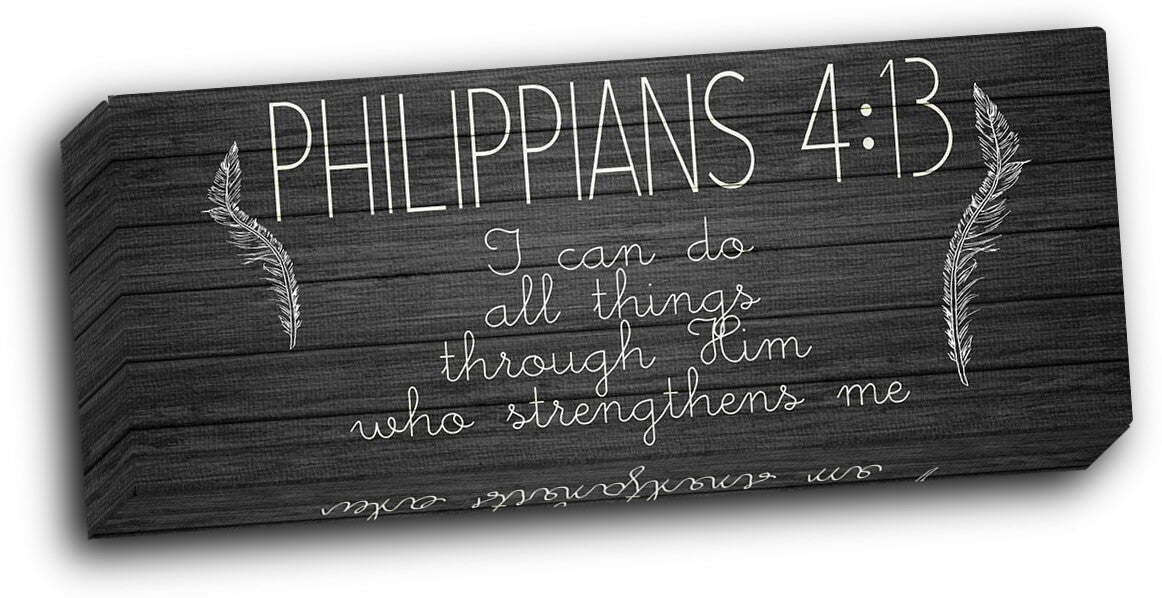 PHILIPPIANS 4:13
I can do
all things
through Him
who strengthens me